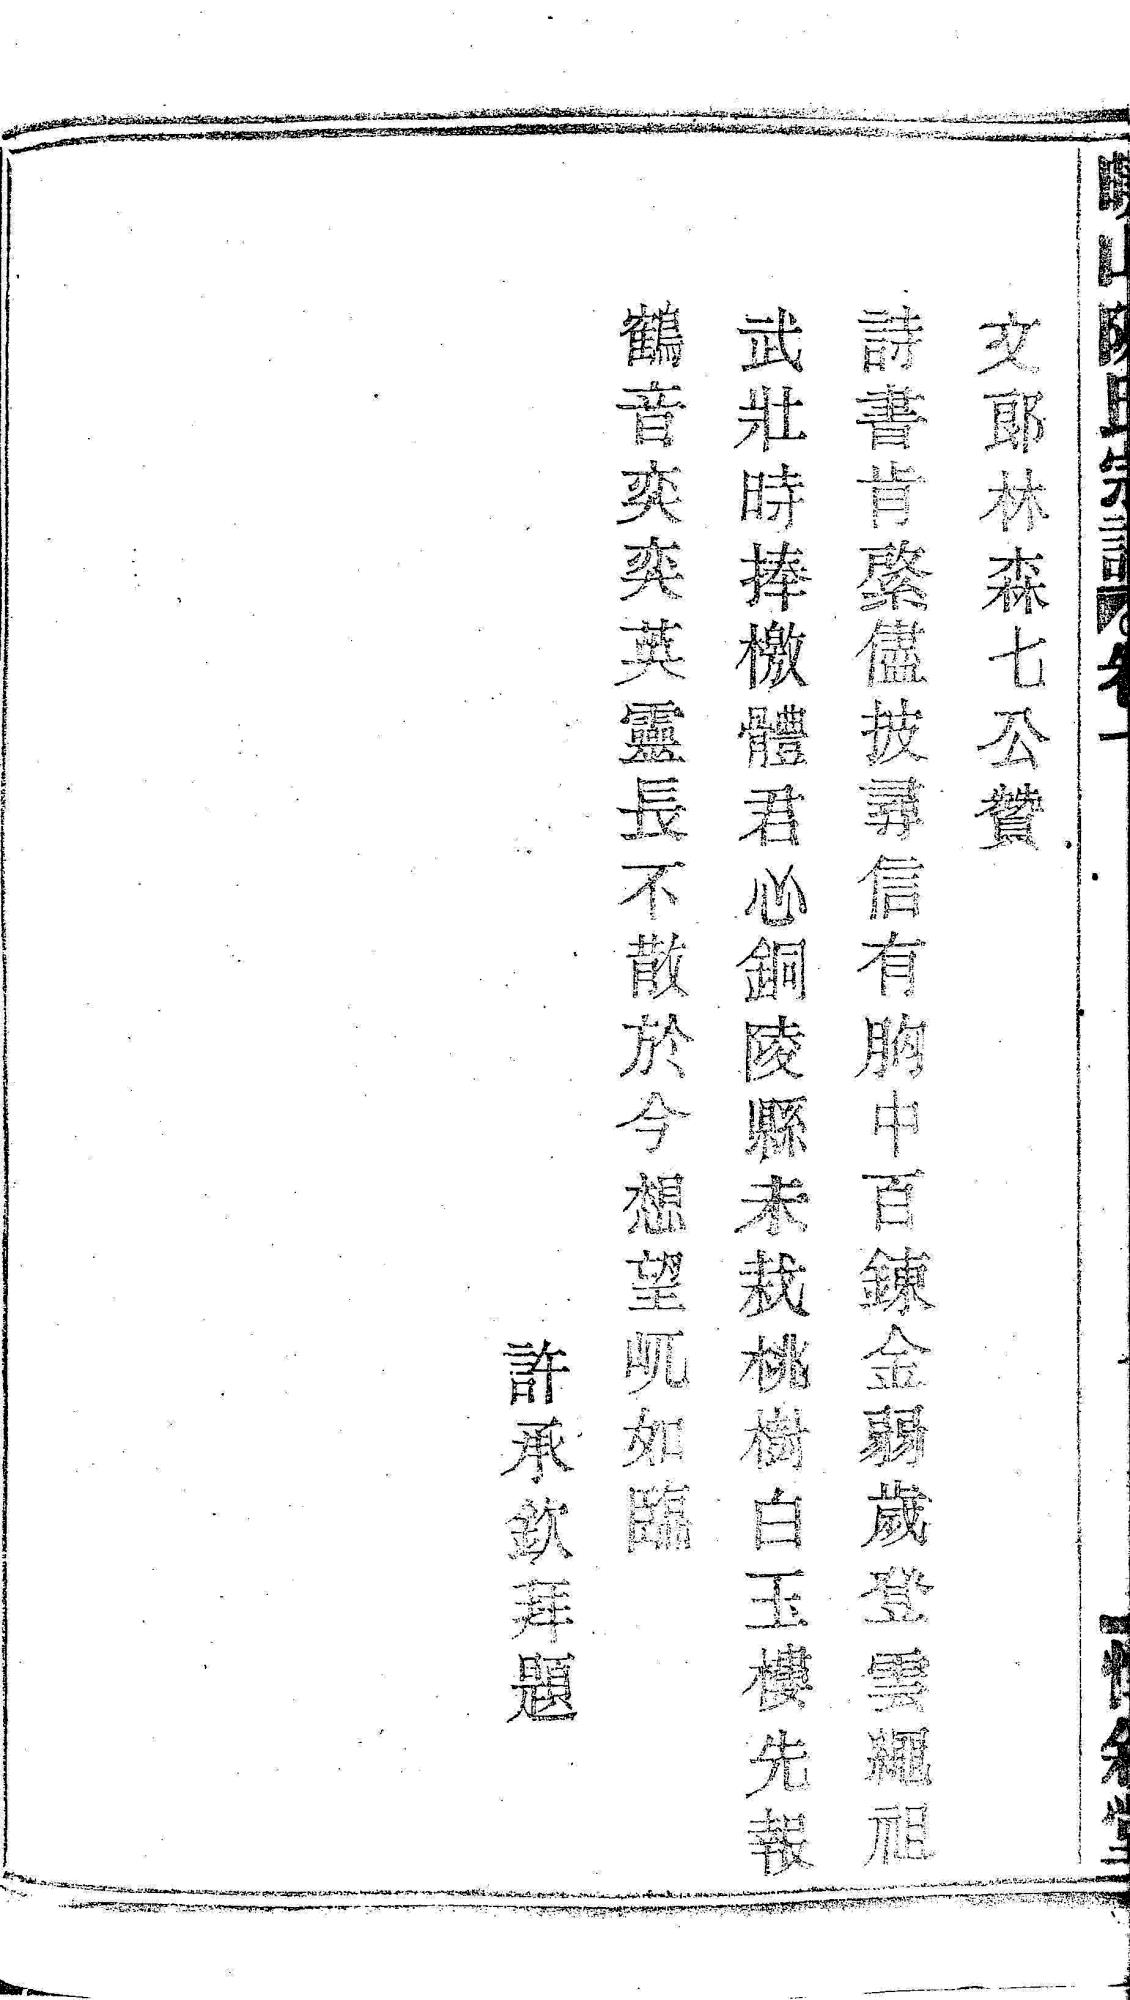 山陳氏宗譜 卷一
文郎林森七公贊
詩書肯綮儘披尋信有胸中百鍊金弱歲登雲繩祖
武壯時捧檄體君心銅陵縣未栽桃樹白玉樓先報
鶴音奕奕英靈長不散於今想望屼如臨
許承欽拜題